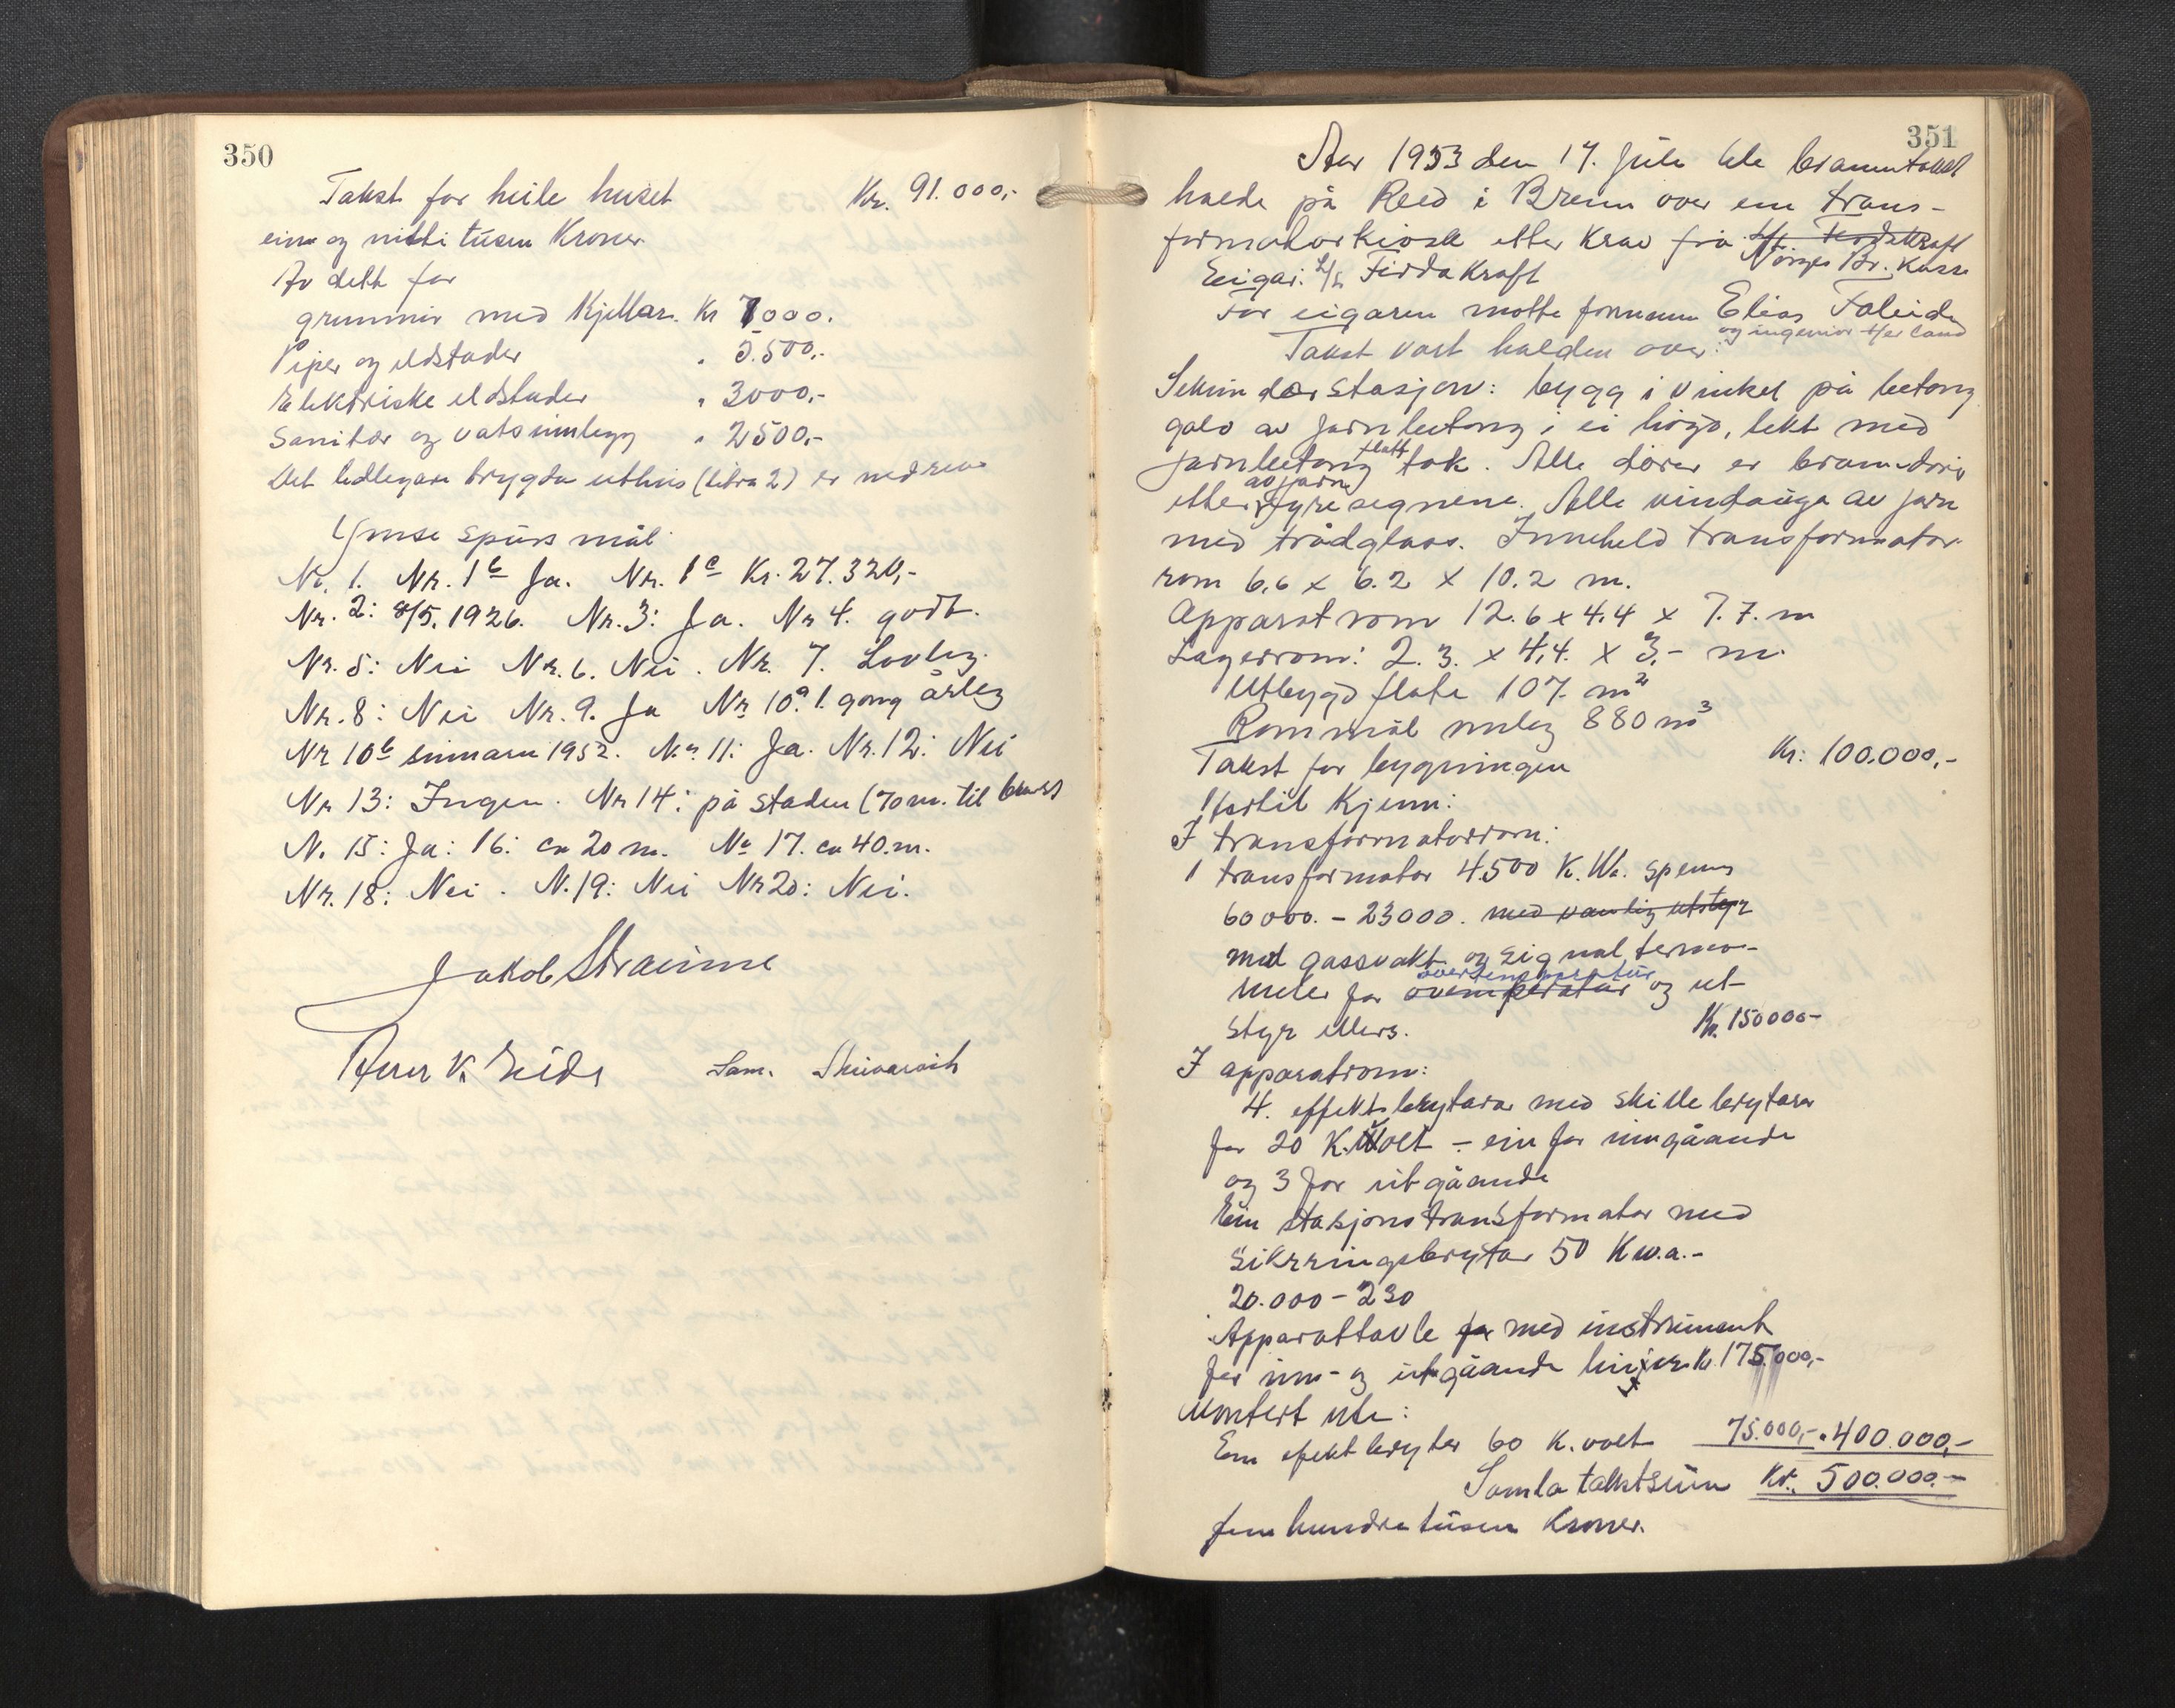 350
Takst for heile huset Kr. 91.000,-
ein og nitti tusen Kroner.
Av dette for
grunnmur med Kjellar. Kr 7000.
Piper og eldstader " 3.500,-
Elektriske eldstader " 3000,-
Sanitær og vatsinnlegg " 2500,-
Det tidlegare brygda uthus (litra 2) er nedreve
Ymse spursmål
Nr. 1. Nr. 1b Ja. Nr. 1c Kr. 27.320,-
Nr. 2: 8/5. 1926. Nr. 3: Ja. Nr 4. godt.
Nr. 5: Nei Nr. 6. Nei. Nr. 7. Lovleg.
Nr. 8: Nei Nr. 9. Ja Nr 10a 1. gong årleg
Nr 10b sumaren 1952. Nr. 11: Ja. Nr. 12: Nei
Nr 13: Ingen. Nr 14: på staden (70 m. til
N. 15: Ja: 16: ca 20 m. Nr 17. ca 40. m.
Nr. 18: Nei. N. 19: Nei Nr 20: Nei.
Jakob Straume
K. Eide Sam.
351
Aar 1953 den 17. Juli ble branntakst
halde på Reed i Breim over ein trans-
formatorkiosk etter Krav frå L/L Firdakraft
Norges Br. Kasse
Eigar: L/L Firda Kraft
For eigaren møtte formann Elias Faleide
og ingeniør Herland
Takst vart halden over:
Sekundærstasjon: bygg i vinkel på betong
golv av jarnbetong i ei høgd, tekt med
jarnbetong flatt tak. Alle dører er branndører
av jarn
etter fyresegnene. Alle vindauga av jarn
med trådglass. Inneheld transformator
rom 6,6 x 6.2 x 10.2 m.
Apparatrom 12.6 x 4.4 x 7.7. m
Lagerrom: 2.3. x 4,4. x 3,- m.
Utbygd flate 107. m2
Rommål umleg 880 m3
Takst for bygningen Kr: 100.000,-
Hertil Kjem:
I transformatorrom:
1 transformator 4500 K. Wa. spenn
60000. - 23000. med vanlig utstyr
med gassvakt og signal termo-
overtemperatur
meter for overtemperatur og ut-
styr ellers. Kr. 150000-
I apparatrom:
4. effektbrytarar med skillebrytarar
for 20 K. Volt - ein for inngåande
og 3 for utgåande
Ein stasjonstransformator med
sikringsbrytar 50 Kw.a.-
20.000 - 230
Apparattavle for med instrument
for inn- og utgåande linjer Kr. 175.000,-
Montert ute:
Ein efektbrytar 60 K. volt 75.000,- " 400.000,-
Samla takstsum Kr. 500.000.-
fem hundre tusen Kroner.